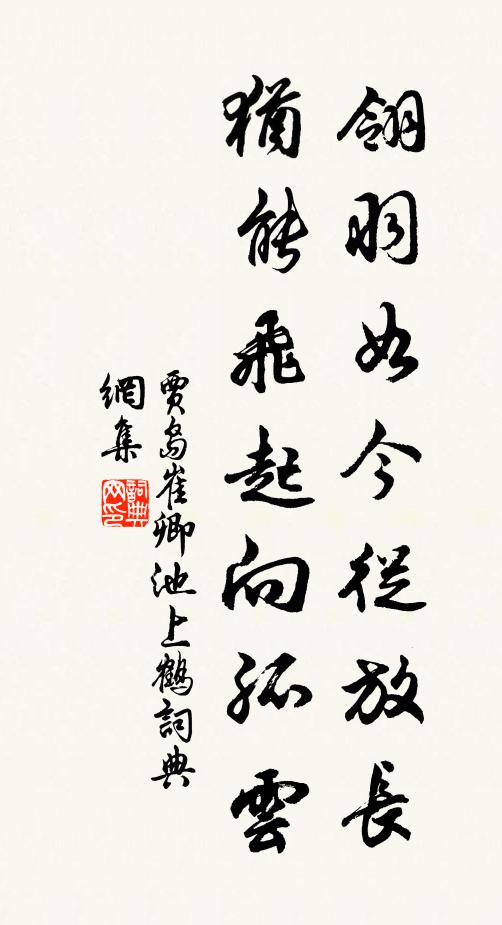 翎羽如今從放長
猶能飛起向孤雲
賈島崔卿池上鶴詞典
網集
詞典
网印